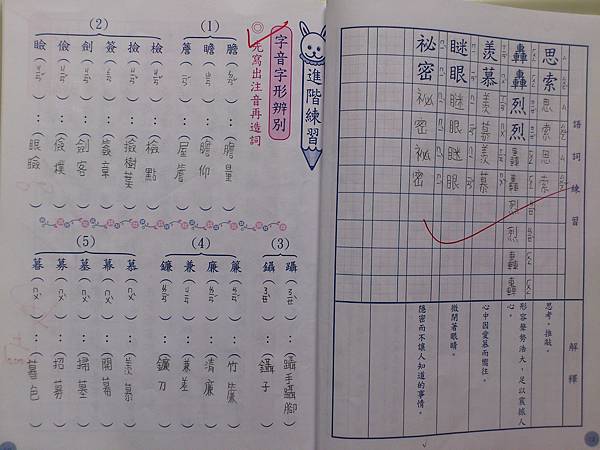 語詞練習
解釋
思索思索思索
思考。推敲。
轟轟烈烈轟轟烈烈轟轟
形容聲勢浩大,足以震撼人心。
羨慕羨慕羨慕
心中因愛慕而嚮往。
瞇眼瞇眼瞇眼
微閉著眼睛。
祕密祕密祕密
隱密而不讓人知道的事情。
進階練習
字音字形辨別
◎先寫出注音再造詞
(1)
膽( ):(膽量)
瞻( ):(瞻仰)
簷( ):(屋簷)
(2)
檢( ):(檢點)
撿( ):(撿樹葉)
簽( ):(簽章)
劍( ):(劍客)
儉( ):(儉樸)
瞼( ):(眼瞼)
(3)
躡( ):(躡手躡腳)
鑷( ):(鑷子)
(4)
簾( ):(竹簾)
廉( ):(清廉)
兼( ):(兼差)
鐮( ):(鐮刀)
(5)
慕( ):(羨慕)
幕( ):(開幕)
墓( ):(掃墓)
募( ):(招募)
暮( ):(暮色)